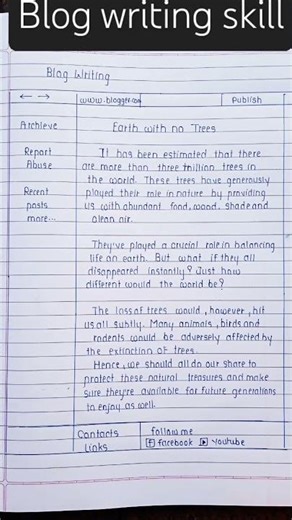 Blog writing skill
Blog Writing
← →
www.blogger.com
Publish
Archieve
Earth with no Trees
Report
Abuse
Recent
posts
more...
It has been estimated that there
are more than three trillion trees in
the world. These trees have generously
played their role in nature by providing
us with abundant food, wood, shade and
clean air.
They've played a crucial role in balancing
life on earth. But what if they all
disappeared instantly? Just how
different would the world be?
The loss of trees would, however, hit
us all subtly. Many animals, birds and
rodents would be adversely affected by
the extinction of trees.
Hence, we should all do our share to
protect these natural treasures and make
sure they're available for future generations
to enjoy as well.
Contacts
Links
follow me
f facebook Youtube